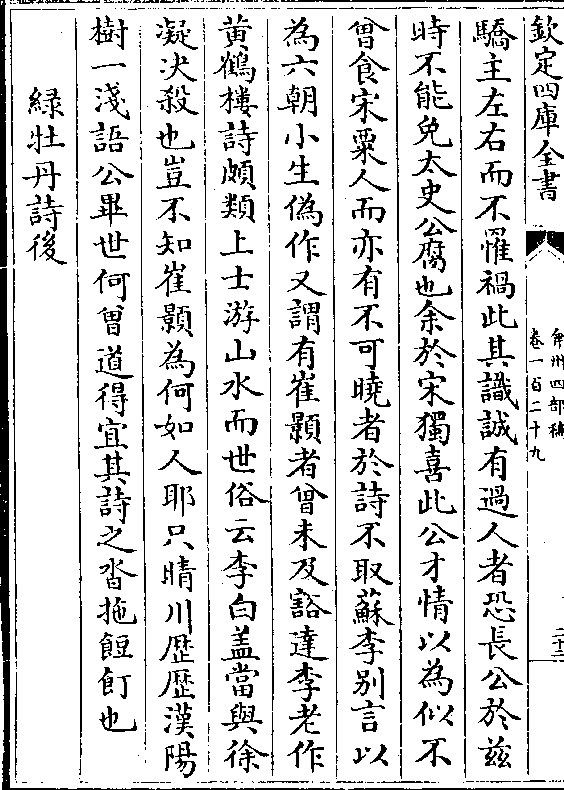 欽定四庫全書
弇州四部稿
卷一百二十九
二十二
驕主左右而不罹禍此其識誠有過人者恐長公於兹
時不能免太史公腐也余於宋獨喜此公才情以為似不
曾食宋粟人而亦有不可曉者於詩不取蘇李别言以
為六朝小生偽作又謂有崔顥者曾未及豁達李老作
黄鶴樓詩頗類上士游山水而世俗云李白盖當與徐
凝决殺也豈不知崔顥為何如人耶只晴川歴歴漢陽
樹一淺語公畢世何曾道得宜其詩之沓拖餖飣也
緑牡丹詩後